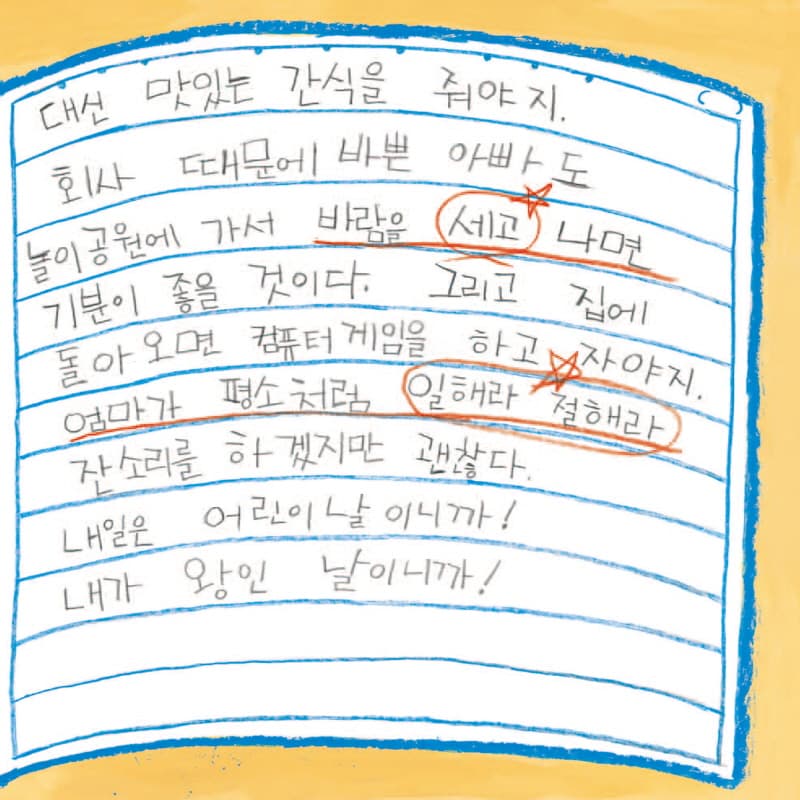 대신 맛있는 간식을 줘야지.
회사 때문에 바쁜 아빠도
놀이공원에 가서 바람을 세고 나면
기분이 좋을 것이다. 그리고 집에
돌아오면 컴퓨터게임을 하고 자야지.
엄마가 평소처럼 일해라 절해라
잔소리를 하겠지만 괜찮다.
내일은 어린이날이니까!
내가 왕인 날이니까!